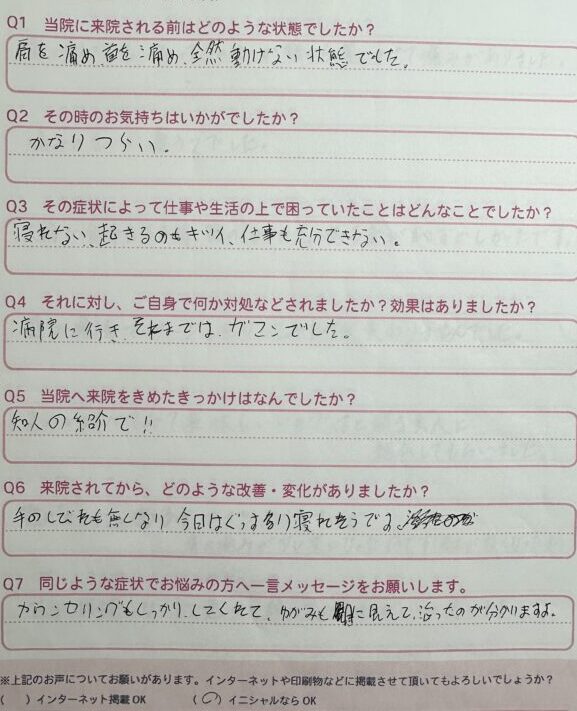 Q1 当院に来院される前はどのような状態でしたか？
肩を痛め、首を痛め、全然動けない状態でした。
Q2 その時のお気持ちはいかがでしたか？
かなりつらい。
Q3 その症状によって仕事や生活の上で困っていたことはどんなことでしたか？
寝れない、起きるのもキツイ、仕事も充分できない。
Q4 それに対し、ご自身で何か対処などされましたか？効果はありましたか？
病院に行き、それまでは、ガマンでした。
Q5 当院へ来院をきめたきっかけはなんでしたか？
知人の紹介で!!
Q6 来院されてから、どのような改善・変化がありましたか？
手のしびれも無くなり 今日はぐっすり寝れそうです。
Q7 同じような症状でお悩みの方へ一言メッセージをお願いします。
カウンセリングもしっかり、してくれて、ゆがみも 目に見えて、治ったのが分かりますよ。
※上記のお声についてお願いがあります。インターネットや印刷物などに掲載させて頂いてもよろしいでしょうか？
(　) インターネット掲載 OK　(○) イニシャルなら OK